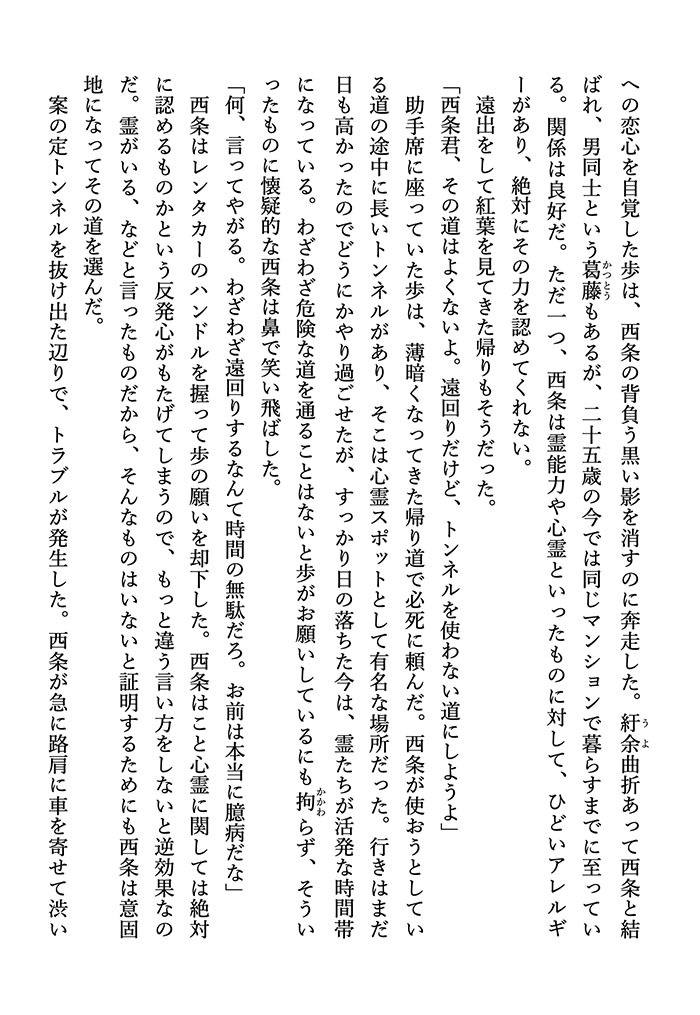 への恋心を自覚した歩は、西条の背負う黒い影を消すのに奔走した。紆余曲折あって西条と結
ばれ、男同士という葛藤もあるが、二十五歳の今では同じマンションで暮らすまでに至ってい
る。関係は良好だ。ただ一つ、西条は霊能力や心霊といったものに対して、ひどいアレルギ
ーがあり、絶対にその力を認めてくれない。
遠出をして紅葉を見てきた帰りもそうだった。
「西条君、その道はよくないよ。遠回りだけど、トンネルを使わない道にしようよ」
助手席に座っていた歩は、薄暗くなってきた帰り道で必死に頼んだ。西条が使おうとしてい
る道の途中に長いトンネルがあり、そこは心霊スポットとして有名な場所だった。行きはまだ
日も高かったのでどうにかやり過ごせたが、すっかり日の落ちた今は、霊たちが活発な時間帯
になっている。わざわざ危険な道を通ることはないと歩がお願いしているにも拘らず、そうい
ったものに懐疑的な西条は鼻で笑い飛ばした。
「何、言ってやがる。わざわざ遠回りするなんて時間の無駄だろ。お前は本当に臆病だな」
西条はレンタカーのハンドルを握って歩の願いを却下した。西条はこと心霊に関しては絶対
に認めるものかという反発心がもたげてしまうので、もっと違う言い方をしないと逆効果なの
だ。霊がいる、などと言ったものだから、そんなものはいないと証明するためにも西条は意固
地になってその道を選んだ。
案の定トンネルを抜け出た辺りで、トラブルが発生した。西条が急に路肩に車を寄せて渋い